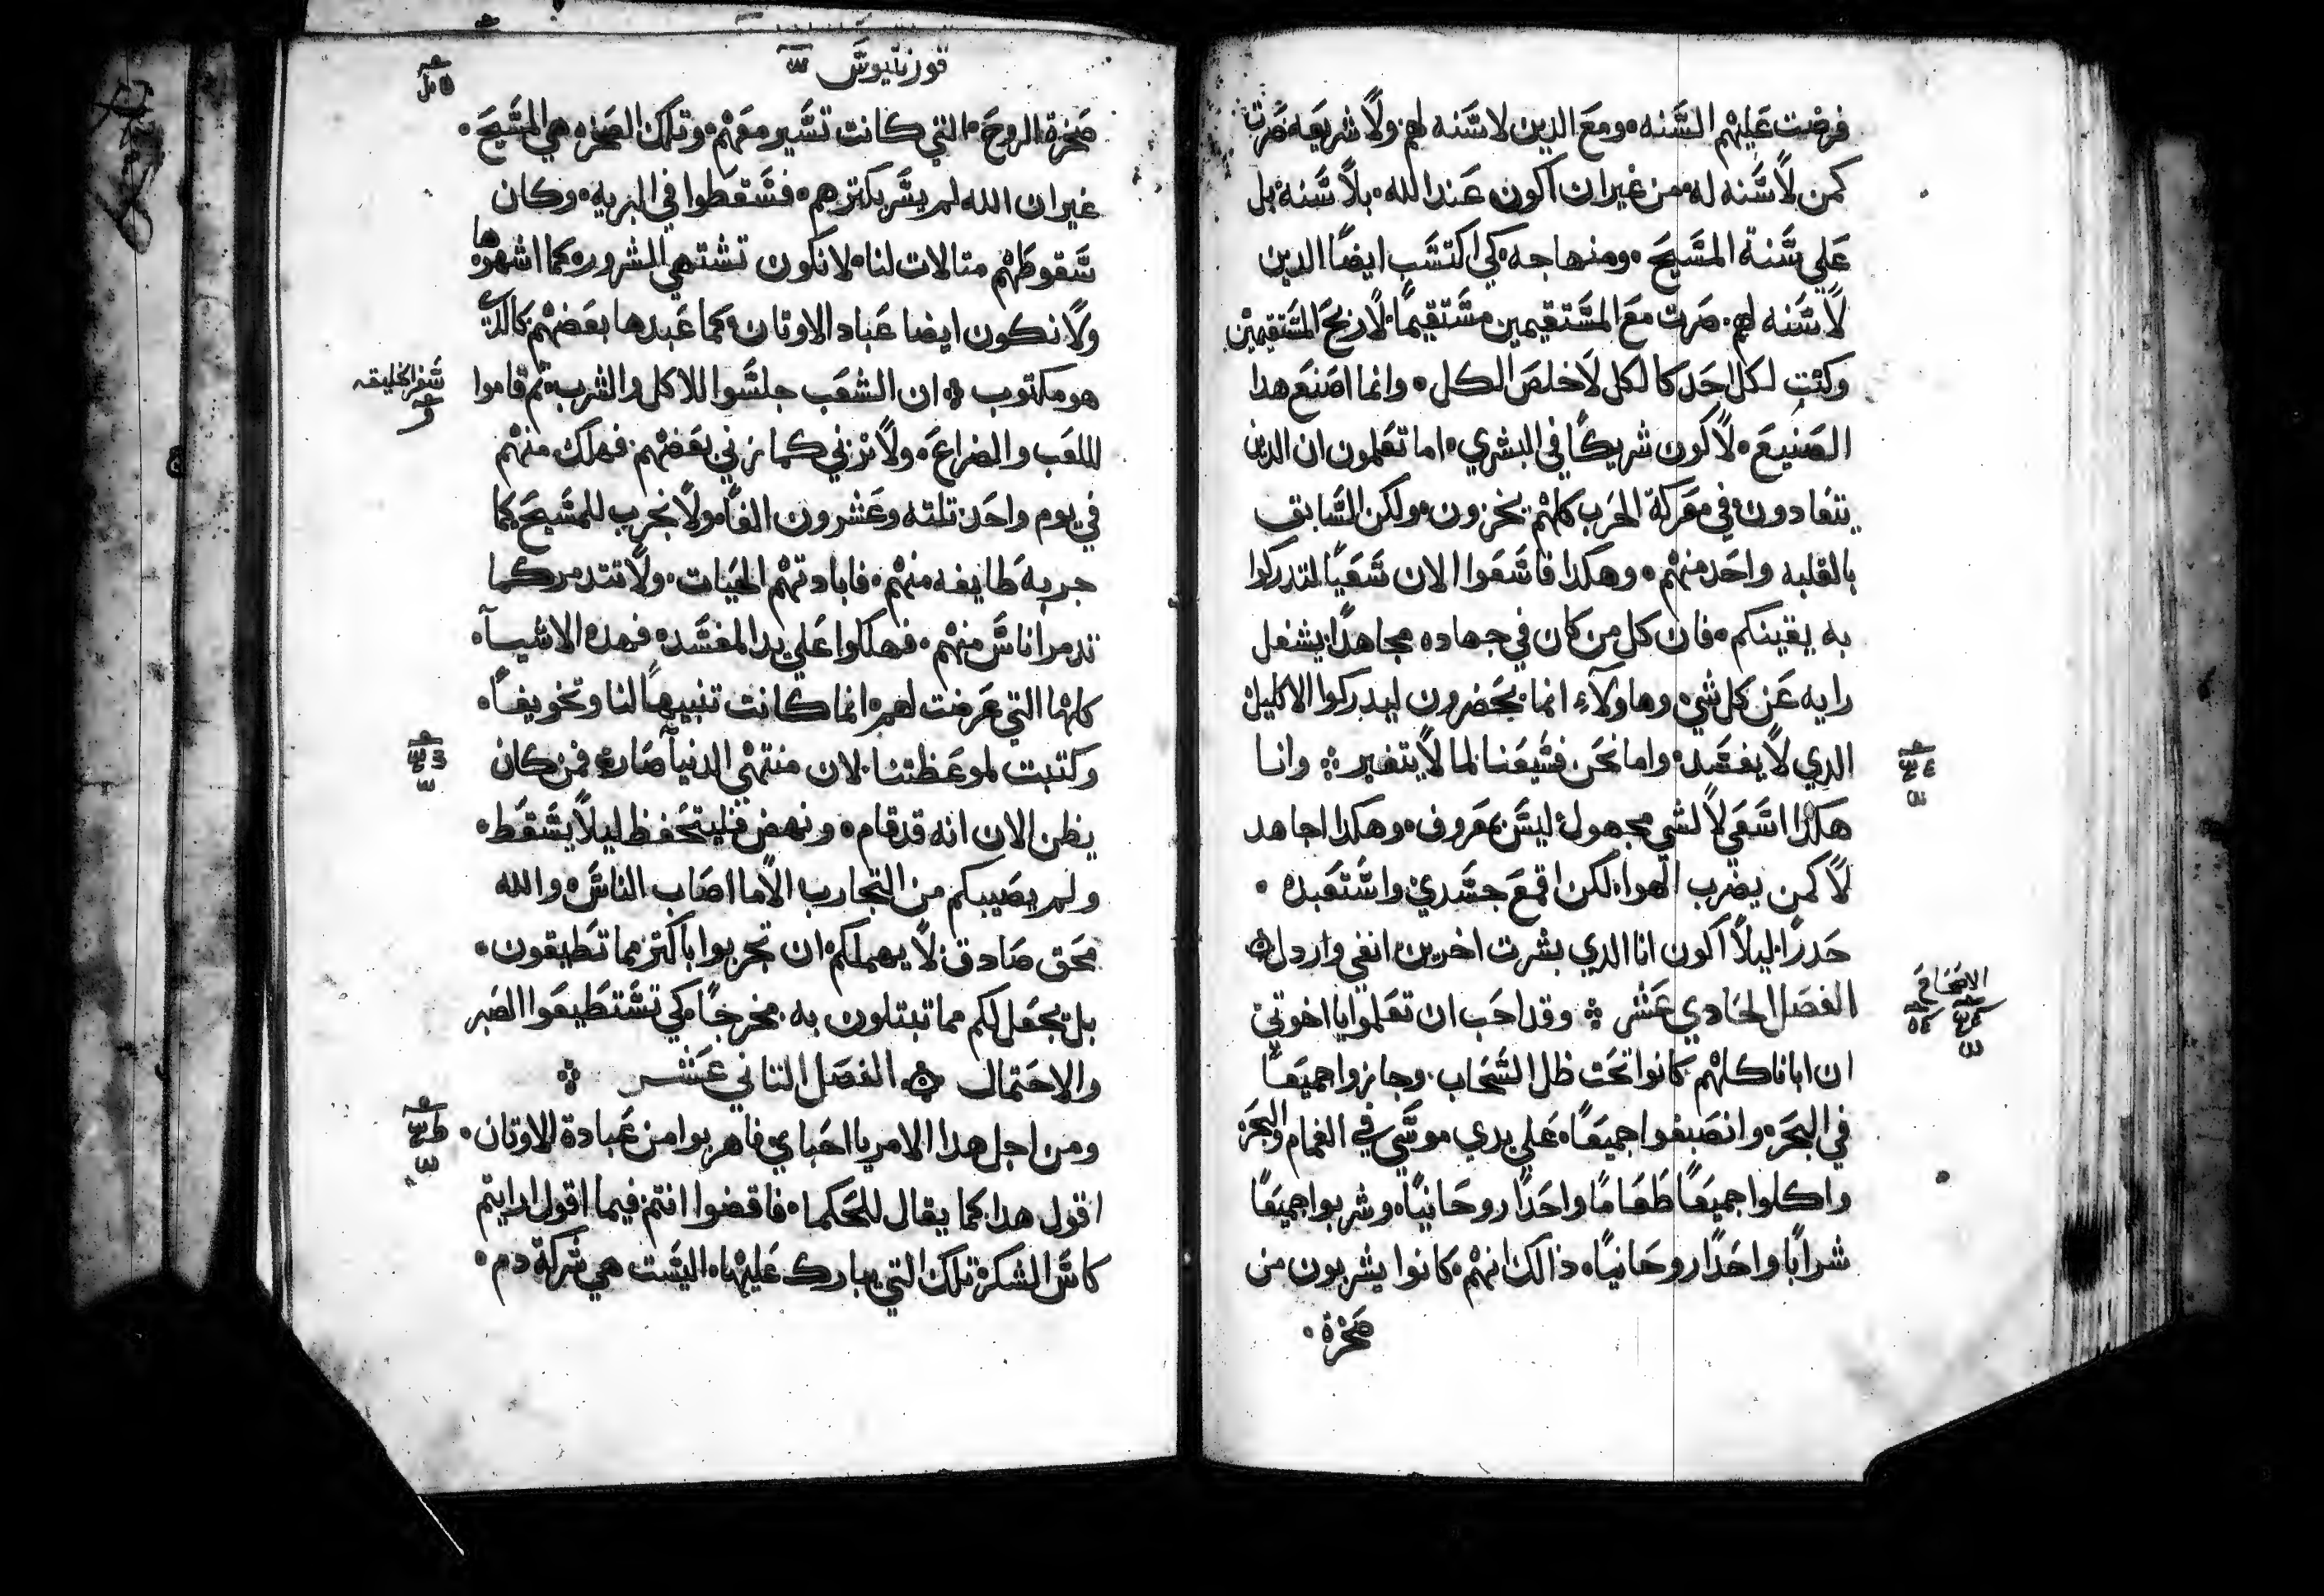 فرضت عليهم السنه ومع الدين لا سنه لهم ولا شريعه صرت
كمن لا سنه له من غير ان اكون عند الله بلا سنه بل
علي سنة المسيح ومنهاجه كي اكتسب ايضا الدين
لا سنه لهم صرت مع المستقيمين مستقيما لاربح المستقيمين
وكنت لكل احد كالكل لاخلص الكل وانما اصنع هدا
الصنيع لاكون شريكا في البشري اما تعلمون ان الدين
يتعادون في معركة الحرب كلهم يحزون ولكن السابق
بالغلبه واحد منهم وهكدا فاسعوا الان سعيا لتدركوا
به يقينكم فان كل من كان في جهاده مجاهدا يشغل
رايه عن كل شي وهاولاء انما يحضرون ليدركوا الاكليل
الدي لا يفسد واما نحن فسعينا لما لا يتغير وانا
هكدا اسعي لا لشي مجهول ليس بمعروف وهكدا اجاهد
لا كمن يضرب الهوا لكن اقمع جسدي واستعبده
حدرا ليلا اكون انا الدي بشرت اخرين انفي واردل
الفصل الحادي عشر وقد احب ان تعلموا يا اخوتي
ان ابانا كلهم كانوا تحت ظل السحاب وجازوا جميعا
في البحر وانصبغوا جميعا علي يدي موسي في الغمام والبحر
واكلوا جميعا طعاما واحدا روحانيا وشربوا جميعا
شرابا واحدا روحانيا ذالك انهم كانوا يشربون من
صخرة
الاصحاح
قورنتيوس
صخرة الروح التي كانت تسير معهم وتلك الصخره هي المسيح
غير ان الله لم يسر بكترهم فسقطوا في البريه وكان
سقوطهم متالات لنا لا نكون تشتهي الشرور كما اشهوها
ولا نكون ايضا عباد الاوتان كما عبدها بعضهم كالدي
هو مكتوب ان الشعب جلسوا للاكل والشرب تم قاموا
سفر الخليقه
لللعب والصراع ولا نزني كما زني بعضهم فهلك منهم
في يوم واحد تلته وعشرون الفا ولا نجرب للمسيح كما
جربه طايفه منهم فابادتهم الحيات ولا تتدمر كما
تدمر اناس منهم فهلكوا علي يد المفسد فهده الاشيآ
كلها التي عرضت لهم انما كانت تنبيها لنا وتخويفا
وكتبت لموعظتنا لان منتهي الدنيا صار فمن كان
يظن الان انه قد قام ونهض فليتحفظ ليلا يسقط
ولم يصيبكم من التجارب الا ما اصاب الناس والله
محق صادق لا يهملكم ان تجربوا باكتر مما تطيقون
بل يجعل لكم مما تبتلون به مخرجا كي تستطيعوا الصبر
والاحتمال الفصل التاني عشر
ومن اجل هدا الامر يا احباي فاهربوا من عبادة الاوتان
اقول هدا كما يقال للحكما فاقضوا انتم فيما اقول ارايتم
كاس الشكر تلك التي يبارك عليها اليست هي شركة دم